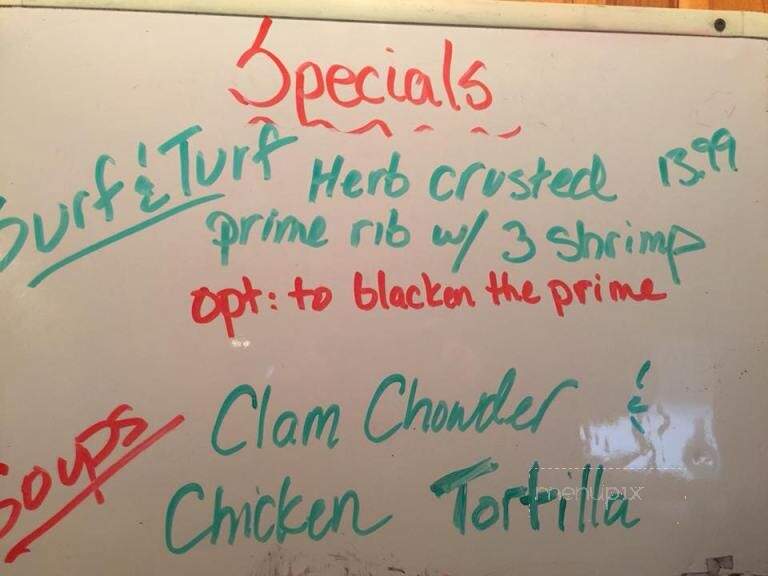 Specials
Surf & Turf Herb crusted 13.99
prime rib w/ 3 shrimp
opt: to blacken the prime
Soups Clam Chowder &
Chicken Tortilla
menupix